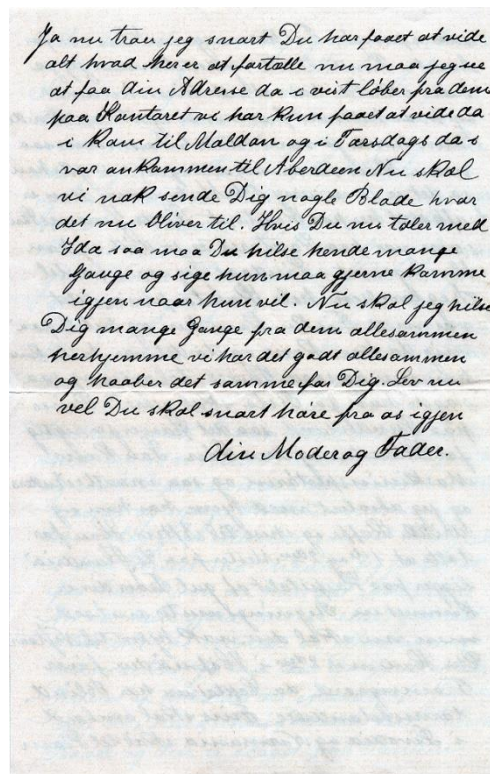 Ja nu troer jeg snart Du har faaet at vide
alt hvad her er at fortælle nu maa jeg see
at faa din Adresse da i vist løber fra dem
paa Kontoret vi har kun faaet at vide da
i kom til Maldon og i Torsdags da i
var ankommen til Aberdeen Nu skal
vi nok sende Dig nogle Blade hvor
det nu bliver til. Hvis Du nu taler med
Ida saa maa Du hilse hende mange
Gange og sige hun maa gjerne komme
igjen naar hun vil. Nu skal jeg hilse
Dig mange Gange fra dem allesammen
herhjemme vi har det godt allesammen
og haaber det samme for Dig. Lev nu
vel Du skal snart høre fra os igjen
din Moder og Fader.